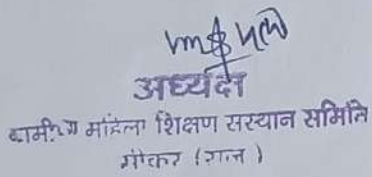 अध्यक्ष
ग्रामीण महिला शिक्षण संस्थान समिति
सीकर (राज)